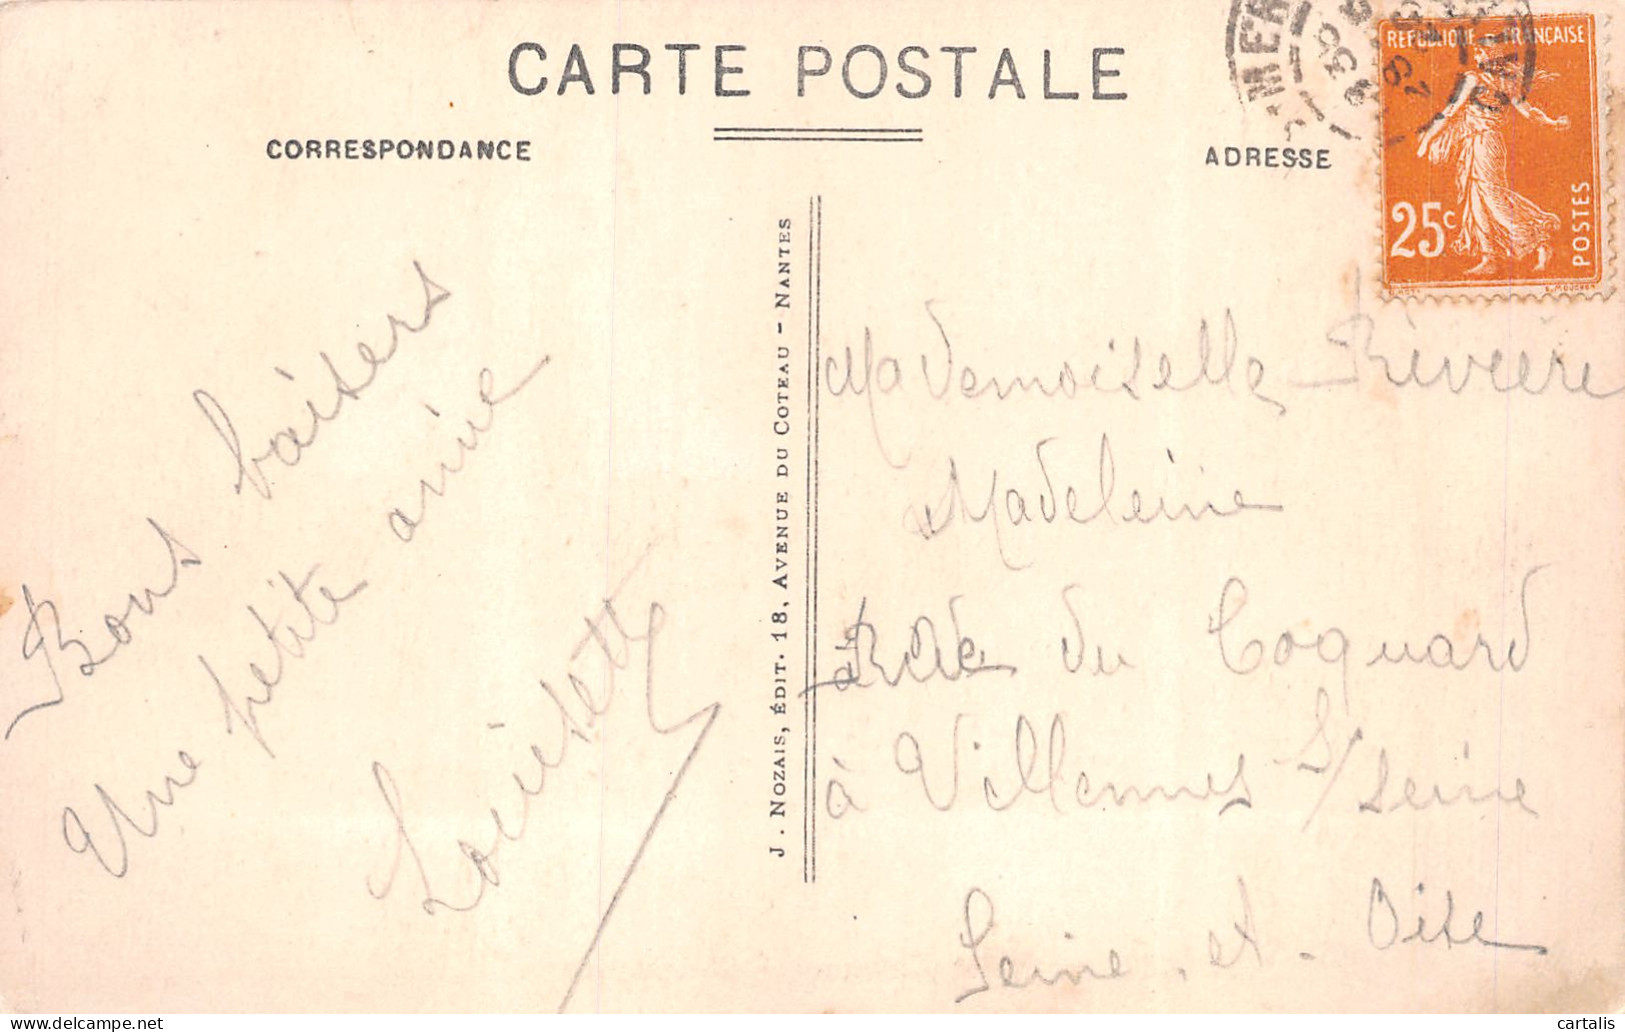 CARTE POSTALE
CORRESPONDANCE
ADRESSE
REPUBLIQUE FRANÇAISE
25c
POSTES
Bons baisers
Une petite amie
Louisette
J. NOZAIS, ÉDIT. 18, AVENUE DU COTEAU - NANTES
Mademoiselle Rivière
Madeleine
du Coquard
à Villennes s/ seine
Seine. et. Oise
cartalis